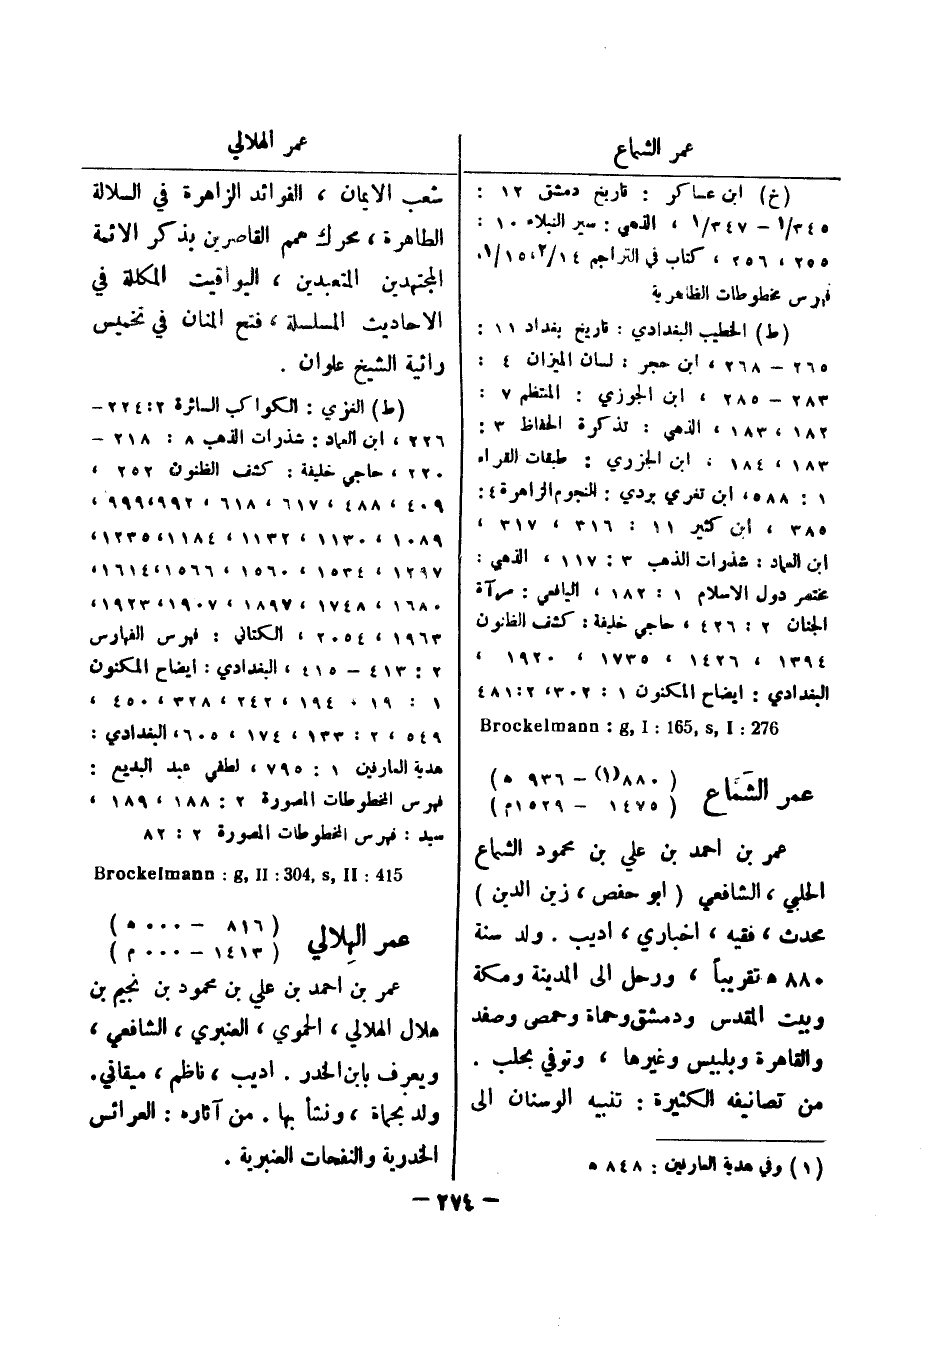 عمر الشماع
(خ) ابن عساكر : تاريخ دمشق ١٢ :
١/٣٤٥ – ١/٣٤٧ ، الذهبي : سير النبلاء ١٠ :
٢٥٥ ، ٢٥٦ ، كتاب في التراجم ٢/١٤، ١/١٥،
فهرس مخطوطات الظاهرية
(ط) الخطيب البغدادي : تاريخ بغداد ١١ :
٢٦٥ – ٢٦٨ ، ابن حجر : لسان الميزان ٤ :
٢٨٣ – ٢٨٥ ، ابن الجوزي : المنتظم ٧ :
١٨٢ ، ١٨٣ ، الذهبي : تذكرة الحفاظ ٣ :
١٨٣ ، ١٨٤ ، ابن الجزري : طبقات القراء
١ : ٥٨٨، ابن تغري بردي : النجوم الزاهرة ٤ :
٣٨٥ ، ابن كثير ١١ : ٣١٦ ، ٣١٧ ،
ابن العماد : شذرات الذهب ٣ : ١١٧ ، الذهبي :
مختصر دول الاسلام ١ : ١٨٢ ، اليافعي : مرآة
الجنان ٢ : ٤٢٦ ، حاجي خليفة : كشف الظنون
١٣٩٤ ، ١٤٢٦ ، ١٧٣٥ ، ١٩٢٠ ،
البغدادي : ايضاح المكنون ١ : ٣٠٢، ٢ : ٤٨١
Brockelmann : g, I : 165, s, I : 276
عمر الشَّمَّاع
( ٨٨٠(١) – ٩٣٦ ه )
( ١٤٧٥ – ١٥٢٩م )
عمر بن احمد بن علي بن محمود الشماع
الحلبي ، الشافعي ( ابو حفص ، زين الدين )
محدث ، فقيه ، اخباري ، اديب . ولد سنة
٨٨٠ ه تقريباً ، ورحل الى المدينة ومكة
وبيت المقدس ودمشق وحماة وحمص وصفد
والقاهرة وبلبيس وغيرها ، وتوفي بحلب .
من تصانيفه الكثيرة : تنبيه الوسنان الى
(١) وفي هدية العارفين : ٨٤٨ ه
عمر الهلالي
شعب الايمان ، الفوائد الزاهرة في السلالة
الطاهرة ، محرك همم القاصرين بذكر الائمة
المجتهدين المتعبدين ، اليواقيت المكللة في
الاحاديث المسلسلة ، فتح المنان في تخميس
رائية الشيخ علوان .
(ط) الغزي : الكواكب السائرة ٢ : ٢٢٤ –
٢٢٦ ، ابن العماد : شذرات الذهب ٨ : ٢١٨ –
٢٢٠ ، حاجي خليفة : كشف الظنون ٢٥٢ ،
٤٠٩ ، ٤٨٨ ، ٦١٧ ، ٦١٨ ، ٩٩٢، ٩٩٩ ،
١٠٨٩ ، ١١٣٠ ، ١١٣٢ ، ١١٨٤، ١٢٣٥،
١٢٩٧ ، ١٥٣٤ ، ١٥٦٠ ، ١٥٦٦، ١٦١٤،
١٦٨٠ ، ١٧٤٨ ، ١٨٩٧ ، ١٩٠٧، ١٩٢٣،
١٩٦٣ ، ٢٠٥٤ ، الكتاني : فهرس الفهارس
٢ : ٤١٣ – ٤١٥ ، البغدادي : ايضاح المكنون
١ : ١٩ ، ١٩٤ ، ٢٤٢ ، ٣٢٨ ، ٤٥٠ ،
٥٤٩ ، ٢ : ١٣٣ ، ١٧٤ ، ٦٠٥، البغدادي :
هدية العارفين ١ : ٧٩٥ ، لطفي عبد البديع :
فهرس المخطوطات المصورة ٢ : ١٨٨ ، ١٨٩ ،
سيد : فهرس المخطوطات المصورة ٢ : ٨٢
Brockelmann : g, II : 304, s, II : 415
عمر الهِلالي
( ٨١٦ – ٠٠٠ ه )
( ١٤١٣ – ٠٠٠ م )
عمر بن احمد بن علي بن محمود بن نجيم بن
هلال الهلالي ، الحموي ، العنبري ، الشافعي ،
ويعرف بابن الخدر . اديب ، ناظم ، ميقاتي.
ولد بحماة ، ونشأ بها . من آثاره : العرائس
الخدرية والنفحات العنبرية .
– ٢٧٤ –